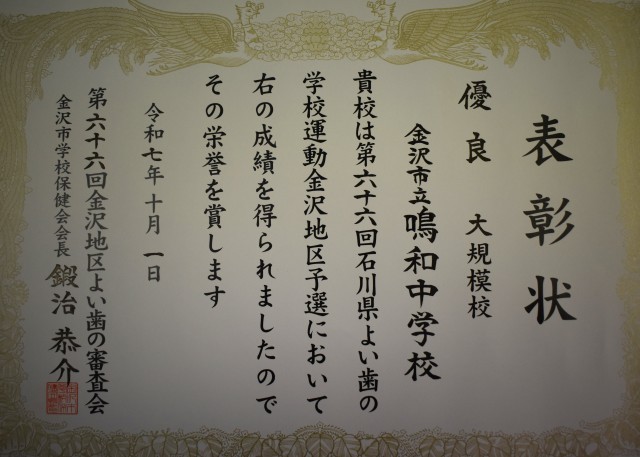 表彰状
優良 大規模校
金沢市立鳴和中学校
貴校は第六十六回石川県よい歯の
学校運動金沢地区予選において
右の成績を得られましたので
その栄誉を賞します
令和七年十月一日
第六十六回金沢地区よい歯の審査会
金沢市学校保健会会長 鍛治恭介